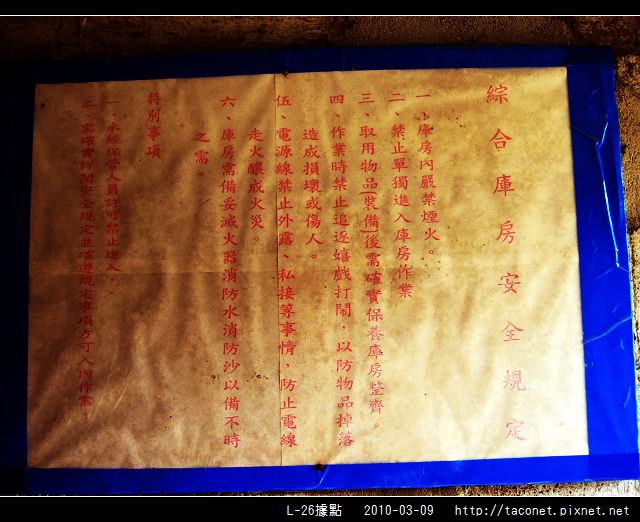 綜合庫房安全規定
一、庫房內嚴禁煙火。
二、禁止單獨進入庫房作業
三、取用物品(裝備)後需確實保養庫房整齊。
四、作業時禁止追逐嬉戲打鬧，以防物品掉落
造成損壞或傷人。
伍、電源線禁止外露、私接等事情，防止電線
走火釀成火災。
六、庫房需備妥滅火器消防水消防沙以備不時
之需。
特別事項
一、未經保管人員許可禁止進入。
二、需確實詳閱安全規定並確遵規定事項方可入內作業。
L-26據點 2010-03-09 http://taconet.pixnet.net